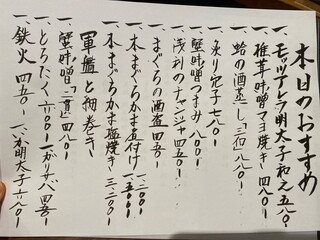 本日のおすすめ
一、モッツアレラ明太子和え 五八〇
一、椎茸味噌マヨ焼き 四八〇
一、蛤の酒蒸し 三ヶ 八八〇
一、炙り穴子 七八〇
一、蟹味噌つまみ 八〇〇
一、浅利のチャンジャ 四五〇
一、まぐろの酒盗 四五〇
一、本まぐろかま煮付 一、二〇〇 一、五〇〇
一、本まぐろかま塩焼き 三、二〇〇
軍艦と細巻き
一、蟹味噌 二貫 四八〇
一、とろたく 六〇〇 一、かりサバ 四五〇
一、鉄火 四五〇 一、いか明太子 六八〇